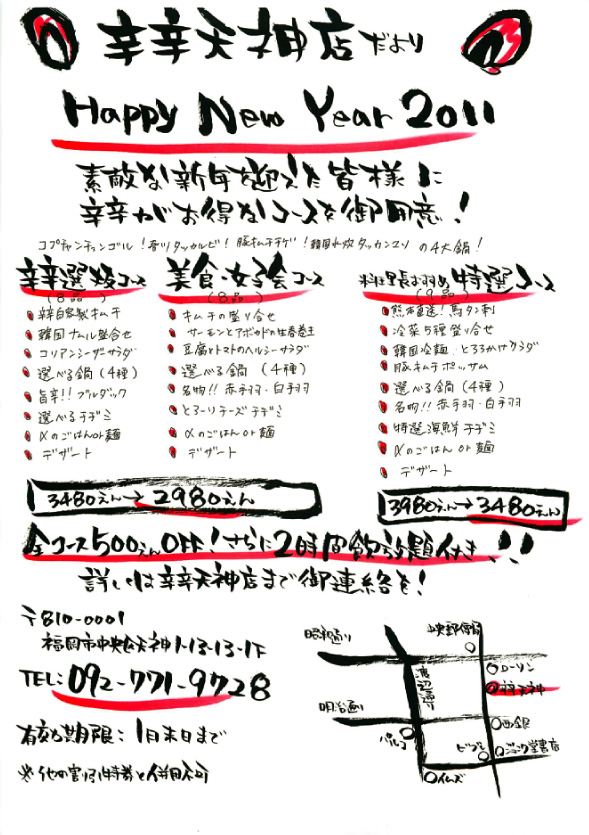 辛辛天神店だより
Happy New Year 2011
素敵な新年を迎えた皆様に
辛辛がお得なコースを御用意!
コプチャンチョンゴル!香リタッカルビ!豚キムチチゲ!韓国水炊タッカンマリ の4大鍋!
辛辛選抜コース
(8品)
辣自家製キムチ
韓国ナムル盛合せ
コリアンシーザーサラダ
選べる鍋(4種)
旨辛!!プルダック
選べるチヂミ
〆のごはんor麺
デザート
美食・女子会コース
(8品)
キムチの盛り合せ
サーモンとアボカドの生春巻王
豆腐とトマトのヘルシーサラダ
選べる鍋(4種)
名物!!赤手羽・白手羽
とろーりチーズチヂミ
〆のごはんor麺
デザート
料理長おすすめ特選コース
(9品)
熊本直送!馬タン刺
冷菜5種盛り合せ
韓国冷麺とろろかけサラダ
豚キムチポッサム
選べる鍋(4種)
名物!!赤手羽・白手羽
特選海鮮チヂミ
〆のごはんor麺
デザート
3480えん→2980えん
3980えん→3480えん
全コース500えんOFF!さらに2時間飲放題付き!!
詳しくは辛辛天神店まで御連絡を!
〒810-0001
福岡市中央区天神1-13-13-1F
TEL:092-771-9728
有効期限:1月末日まで
※他の割引特券と併用不可
昭和通り
中央郵便局
渡辺通り
ローソン
辛辛天神
明治通り
西銀
パルコ
ビブレ
ジュンク堂書店
イムズ